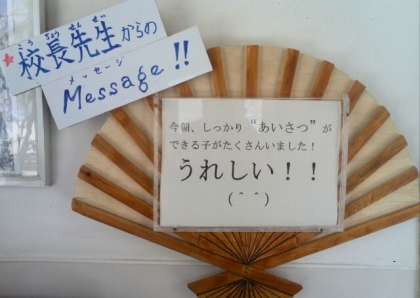 ★校長先生からの
こうちょうせんせい
メッセージ
Message!!
今朝、しっかり“あいさつ”が
できる子がたくさんいました!
うれしい!!
(＾＾)